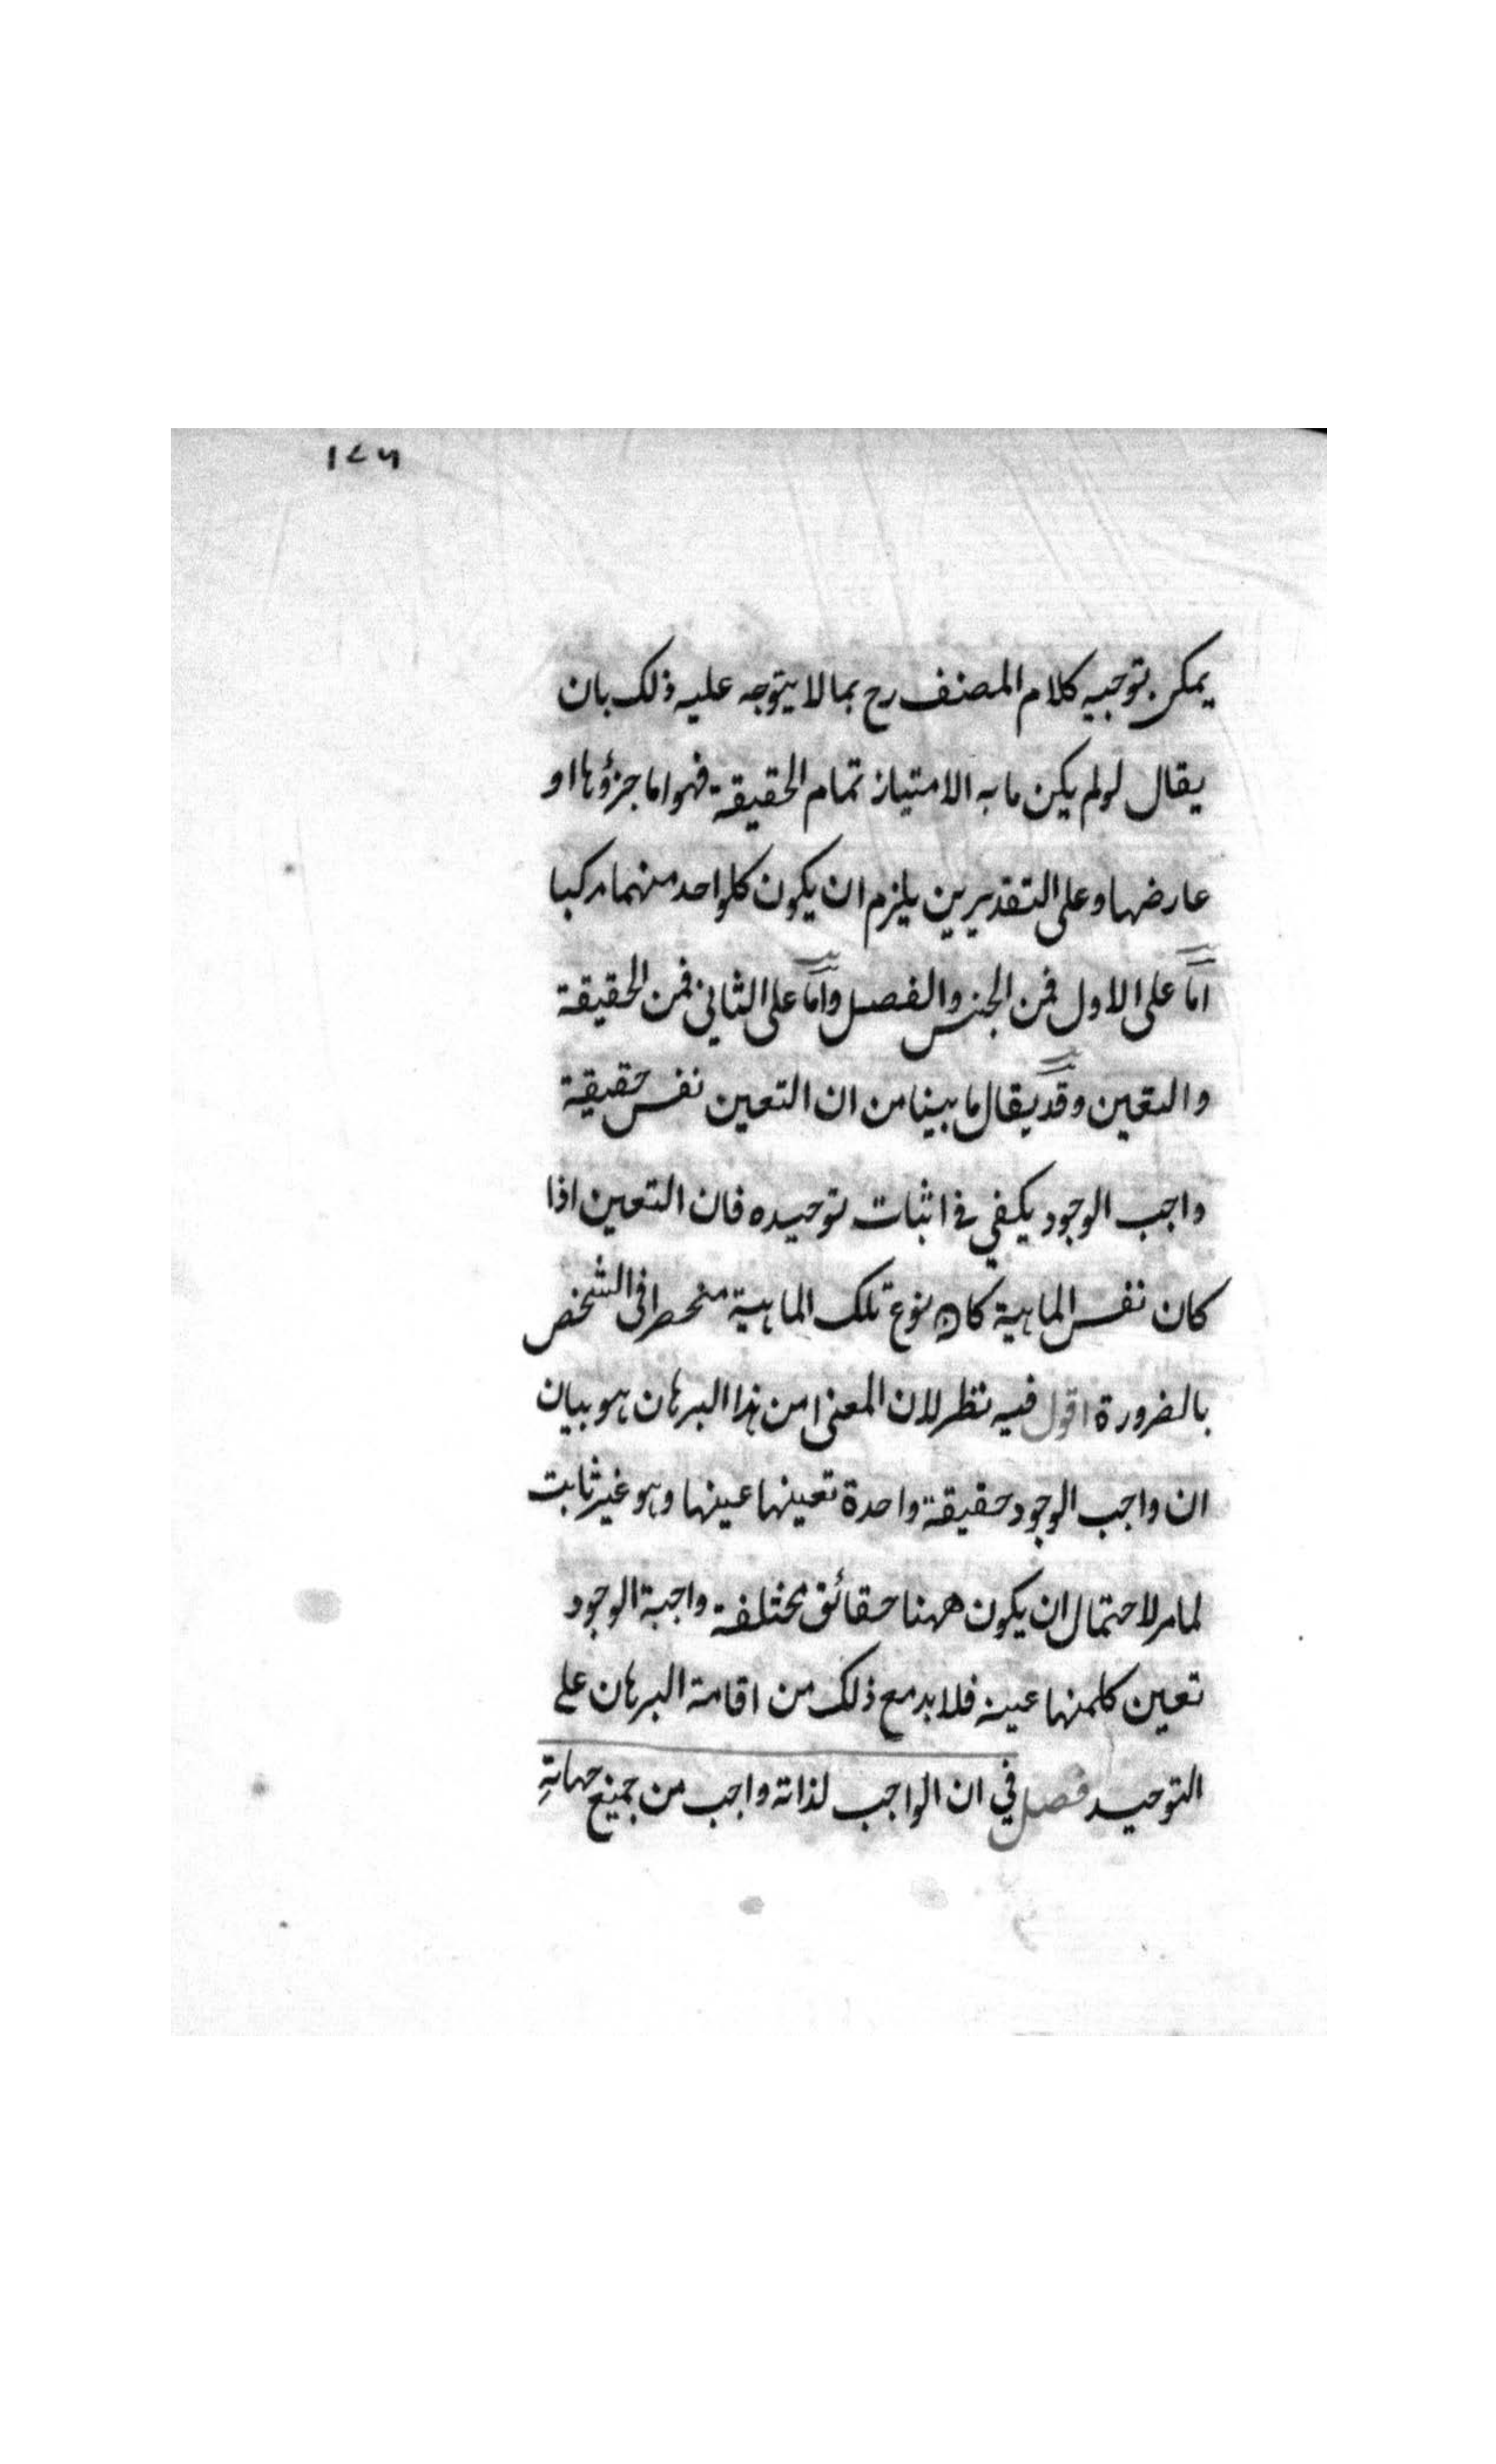 ١٧٦
يمكن توجيه كلام المصنف رح بما لا يتوجه عليه ذلك بان
يقال لو لم يكن ما به الامتياز تمام الحقيقة فهو اما جزؤها او
عارضها وعلى التقديرين يلزم ان يكون كلواحد منهما مركبا
امّا على الاول فمن الجنس والفصل وامّا على الثاني فمن الحقيقة
والتعين وقد يقال ما بينا من ان التعين نفس حقيقة
واجب الوجود يكفي في اثبات توحيده فان التعين اذا
كان نفس الماهية كان نوع تلك الماهية منحصرا في الشخص
بالضرورة اقول فيه نظر لان المعنى من هذا البرهان هو بيان
ان واجب الوجود حقيقة واحدة تعينها عينها وهو غير ثابت
لما مر لاحتمال ان يكون ههنا حقائق مختلفة واجبة الوجود
تعين كلمنها عينه فلا بد مع ذلك من اقامة البرهان على
التوحيد فصل في ان الواجب لذاته واجب من جميع جهاته